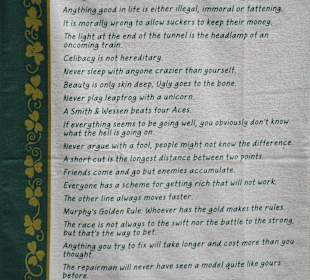 Anything good in life is either illegal, immoral or fattening.
It is morally wrong to allow suckers to keep their money.
The light at the end of the tunnel is the headlamp of an
oncoming train.
Celibacy is not hereditary.
Never sleep with anyone crazier than yourself.
Beauty is only skin deep, Ugly goes to the bone.
Never play leapfrog with a unicorn.
A Smith & Wessen beats four Aces.
If everything seems to be going well, you obviously don't know
what the hell is going on.
Never argue with a fool, people might not know the difference.
A short cut is the longest distance between two points.
Friends come and go but enemies accumulate.
Everyone has a scheme for getting rich that will not work.
The other line always moves faster.
Murphy's Golden Rule: Whoever has the gold makes the rules.
The race is not always to the swift nor the battle to the strong,
but that's the way to bet.
Anything you try to fix will take longer and cost more than you
thought.
The repairman will never have seen a model quite like yours
before.